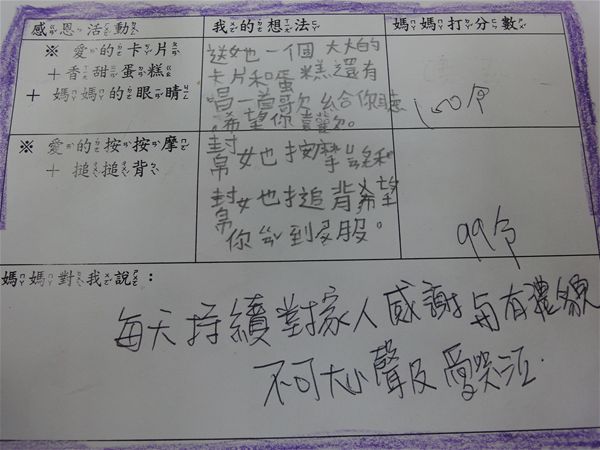 感恩活動 我的想法 媽媽打分數
※ 愛的卡片
+香甜蛋糕
+ 媽媽的眼睛
送她一個大大的
卡片和蛋糕還有
唱一首歌給你聽
,希望你喜歡。
100分
※ 愛的按按摩
+ 搥搥背
幫她按摩
幫她搥背希望
你ㄍㄢ到舒服。
99分
媽媽對我說：
每天持續對家人感謝與有禮貌
不可大小聲及愛哭泣.